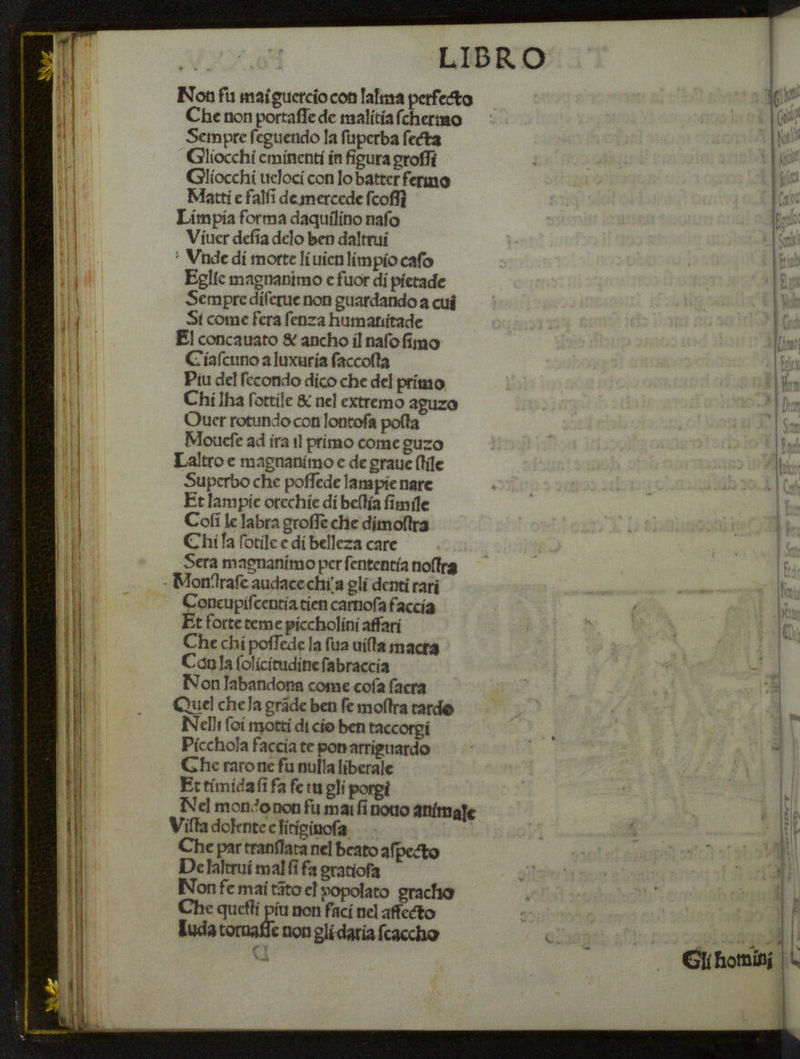 LIBRO
Non fu mai guercio con lalma perfecto
Che non portaſſe de malitia ſchermo
Sempre ſeguendo la ſuperba ſecta
Gliocchi eminenti in figura groſſi
Gliocchi ueloci con lo batter fermo
Matti e falſi de mercede ſcoſſi
Limpia forma daquilino naſo
Viuer deſia delo ben daltrui
Vnde di morte li uien limpio caſo
Eglie magnanimo e fuor di pietade
Sempre diſerue non guardando a cui
Si come fera ſenza humanitade
El concauato & ancho il naſo ſimo
Ciaſcuno a luxuria ſaccoſta
Piu del ſecondo dico che del primo
Chi lha ſottile & nel extremo aguzo
Ouer rotundo con lontoſa poſta
Moueſe ad ira il primo come guzo
Laltro e magnanimo e de graue ſtile
Superbo che poſſede lampie nare
Et lampie orechie di beſtia ſimile
Coſi le labra groſſe che dimoſtra
Chi la ſotile e di belleza care
Sera magnanimo per ſententia noſtra
Monſtraſe audace chi a gli denti rari
Concupiſcentia tien carnoſa faccia
Et forte teme piccholini affari
Che chi poſſede la ſua uiſta macra
Con la ſolicitudine ſabraccia
Non labandona come coſa ſacra
Quel che la grãde ben ſe moſtra tardo
Nelli ſoi motti di cio ben taccorgi
Picchola faccia te pon arriguardo
Che raro ne fu nulla liberale
Et timida ſi fa ſe tu gli porgi
Nel mondo non fu mai ſi nouo animale
Viſta dolente e litiginoſa
Che par tranſlata nel beato aſpecto
De laltrui mal ſi fa gratioſa
Non ſe mai tãto el popolato gracho
Che queſti piu non faci nel affecto
Iuda tornaſſe non gli daria ſcaccho
Gli homini